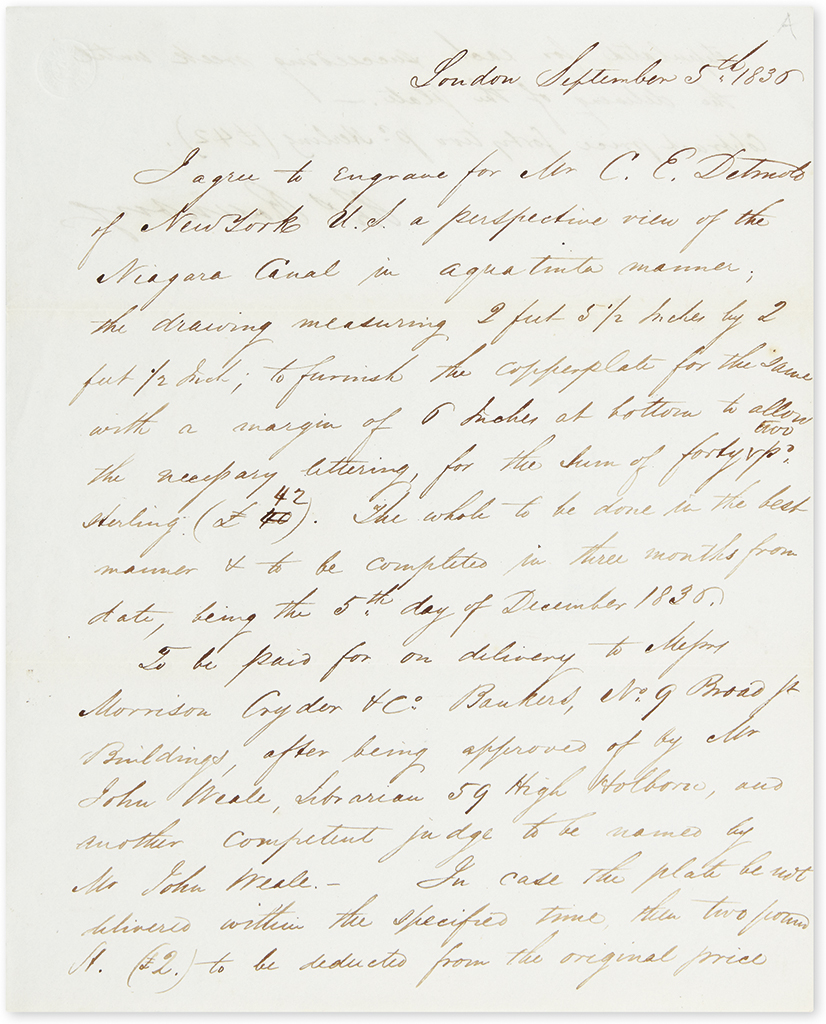 A
London September 5th 1836
I agree to engrave for Mr C. E. Detmold
of New York U.S. a perspective view of the
Niagara Canal in aquatinta manner;
the drawing measuring 2 feet 5 1/2 Inches by 2
feet 1/2 Inch; to furnish the copperplate for the same
with a margin of 6 Inches at bottom to allow
the necessary lettering, for the sum of forty two po.
sterling (£ 40 42). The whole to be done in the best
manner & to be completed in three months from
date, being the 5th day of December 1836.
To be paid for on delivery to Messrs
Morrison Cryder & Co. Bankers, No. 9 Broad st
Buildings, after being approved of by Mr
John Weale, Librarian 59 High Holborn, and
another competent judge to be named by
Mr John Weale. — In case the plate be not
delivered within the specified time, then two pound
St. (£2.) to be deducted from the original price